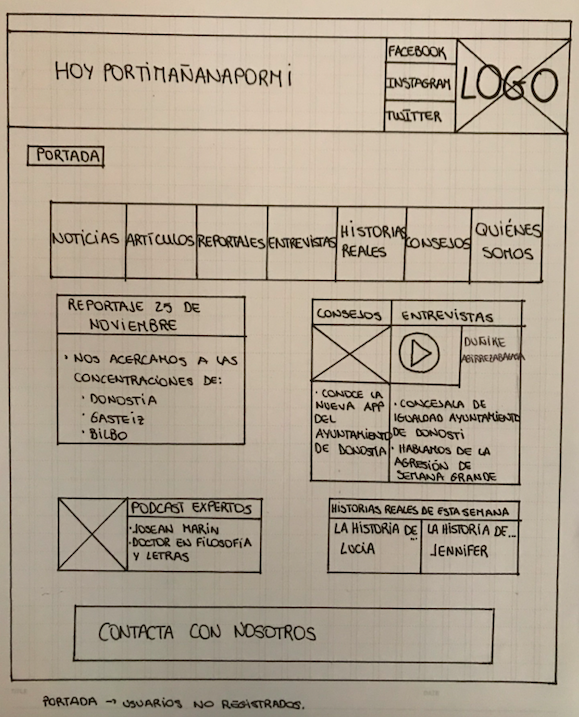 HOY PORTIMAÑANAPORMI
FACEBOOK
INSTAGRAM
TWITTER
LOGO
PORTADA
NOTICIAS
ARTÍCULOS
REPORTAJES
ENTREVISTAS
HISTORIAS
REALES
CONSEJOS
QUIÉNES
SOMOS
REPORTAJE 25 DE
NOVIEMBRE
· NOS ACERCAMOS A LAS
CONCENTRACIONES DE:
· DONOSTIA
· GASTEIZ
· BILBO
CONSEJOS
· CONOCE LA
NUEVA APP
DEL
AYUNTAMIENTO
DE DONOSTIA
ENTREVISTAS
DUÑIKE
AGIRREZABALAGA
· CONCEJALA DE
IGUALDAD AYUNTAMIENTO
DE DONOSTI
· HABLAMOS DE LA
AGRESIÓN DE
SEMANA GRANDE
PODCAST EXPERTOS
· JOSEAN MARÍN
· DOCTOR EN FILOSOFÍA
Y LETRAS
HISTORIAS REALES DE ESTA SEMANA
LA HISTORIA DE...
LUCÍA
LA HISTORIA DE...
JENNIFER
CONTACTA CON NOSOTROS
PORTADA → USUARIOS NO REGISTRADOS.